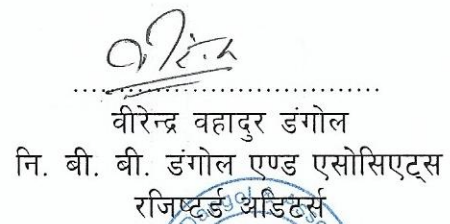 वीरेन्द्र वहादुर डंगोल
नि. बी. बी. डंगोल एण्ड एसोसिएट्स
रजिष्टर्ड अडिटर्स